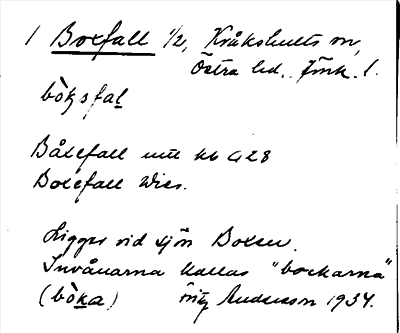 1 Boxfall 1/2, Kråkshults sn,
Östra hd. Jönk. l.
bòksfal
Båxefall utt kb 428
Boxefall Wies.
Ligger vid sjön Boxen.
Invånarna kallas "bockarna"
(bòka) Fritz Andersson 1934.